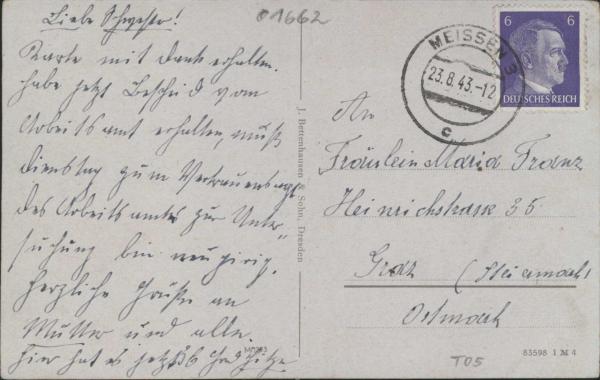 Liebe Schwester!
01662
Karte mit Dank erhalten.
habe jetzt Bescheid vom
Arbeitsamt erhalten, muß
Dienstag zum Vertrauensarzt
des Arbeitsamtes zur Unter-
suchung bin neugierig.
Herzliche Grüße an
Mutter und alle.
Hier hat es jetzt 36 Grad Hitze
J. Bettenhausen & Sohn, Dresden
MEISSEN 3
23.8.43.-12
c
6 6
DEUTSCHES REICH
An
Fräulein Maria Franz
Heinrichstrasse 35
Graz (Steiermark)
Ostmark
83598 1 M 4
T05